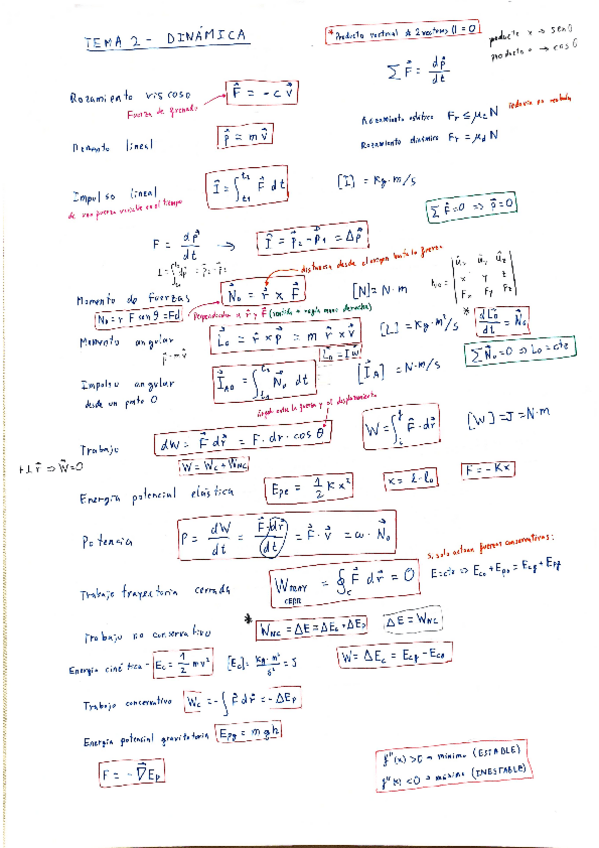 TEMA 2 - DINÁMICA
* Producto vectorial de 2 vectores (1 = 0)
producto x → sen θ
producto • → cos θ
Σ F⃗ = dp⃗/dt
Rozamiento viscoso F⃗ = -c v⃗
Fuerza de frenado
Rozamiento estático Fr ≤ μe N
Rozamiento dinámico Fr = μd N
Momento lineal p⃗ = m v⃗
Impulso lineal I⃗ = ∫t₁^t₂ F⃗ dt [I] = Kg·m/s
de una fuerza variable en el tiempo
Σ F⃗ = 0 ⇒ p⃗ = 0
F = dp⃗/dt → I⃗ = p⃗₂ - p⃗₁ = Δp⃗
distancia desde el origen hasta la fuerza
Momento de fuerzas N⃗o = r⃗ x F⃗ [N] = N·m
No = r F sen θ = Fd
Perpendicular a r⃗ y F⃗ (sentido → regla mano derecha)
Momento angular L⃗o = r⃗ x p⃗ = m r⃗ x v⃗ [L] = Kg·m²/s
p⃗·m v⃗
* dL⃗o/dt = N⃗o
L⃗o = I w⃗
Σ N⃗o = 0 ⇒ Lo = cte
Impulso angular I⃗AO = ∫t₁^t₂ N⃗o dt [I⃗A] = N·m/s
desde un punto O
ángulo entre la fuerza y el desplazamiento
Trabajo dW = F⃗ dr⃗ = F·dr·cos θ W = ∫i^f F⃗·dr⃗ [W] = J = N·m
W = Wc + WNC
Energía potencial elástica Epe = 1/2 K x² x = l - l₀ F = -Kx
Potencia P = dW/dt = F⃗·dr⃗/dt = F⃗·v⃗ = ω·N⃗o
Si solo actúan fuerzas conservativas:
E = cte ⇒ Eco + Epo = Ecf + Epf
Trabajo trayectoria cerrada W TRAY CERR = ∮c F⃗ dr⃗ = 0
* Trabajo no conservativo WNC = ΔE = ΔEc + ΔEp ΔE = WNC
Energía cinética - Ec = 1/2 m v² [Ec] = Kg·m²/s² = J W = ΔEc = Ecf - Eco
Trabajo conservativo Wc = -∫ F⃗ dr⃗ = -ΔEp
Energía potencial gravitatoria Epg = m g h
F = -∇⃗Ep
f''(x) > 0 → mínimo (ESTABLE)
f''(x) < 0 → máximo (INESTABLE)